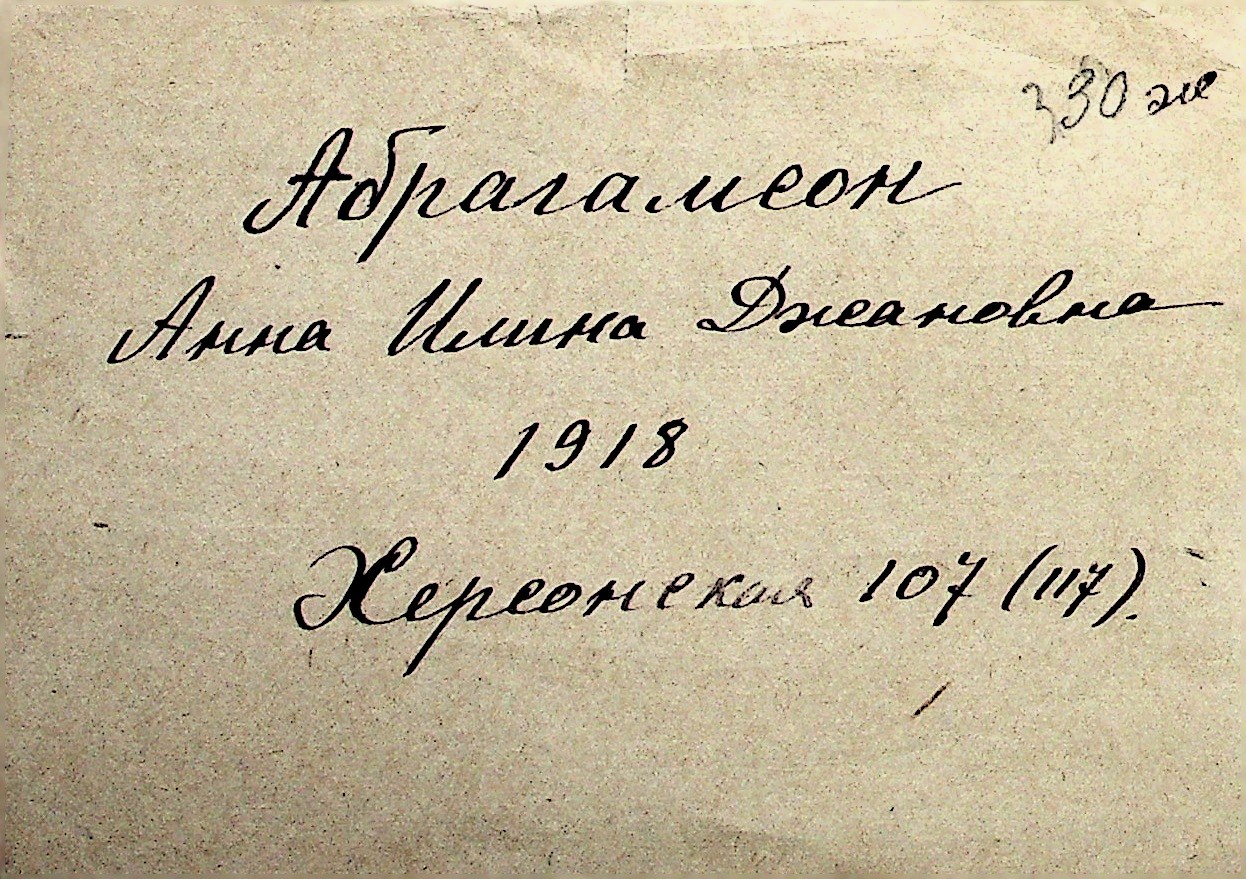 330 ж
Абрагамсон
Анна Илина Джановна
1918
Херсонская 107 (117).